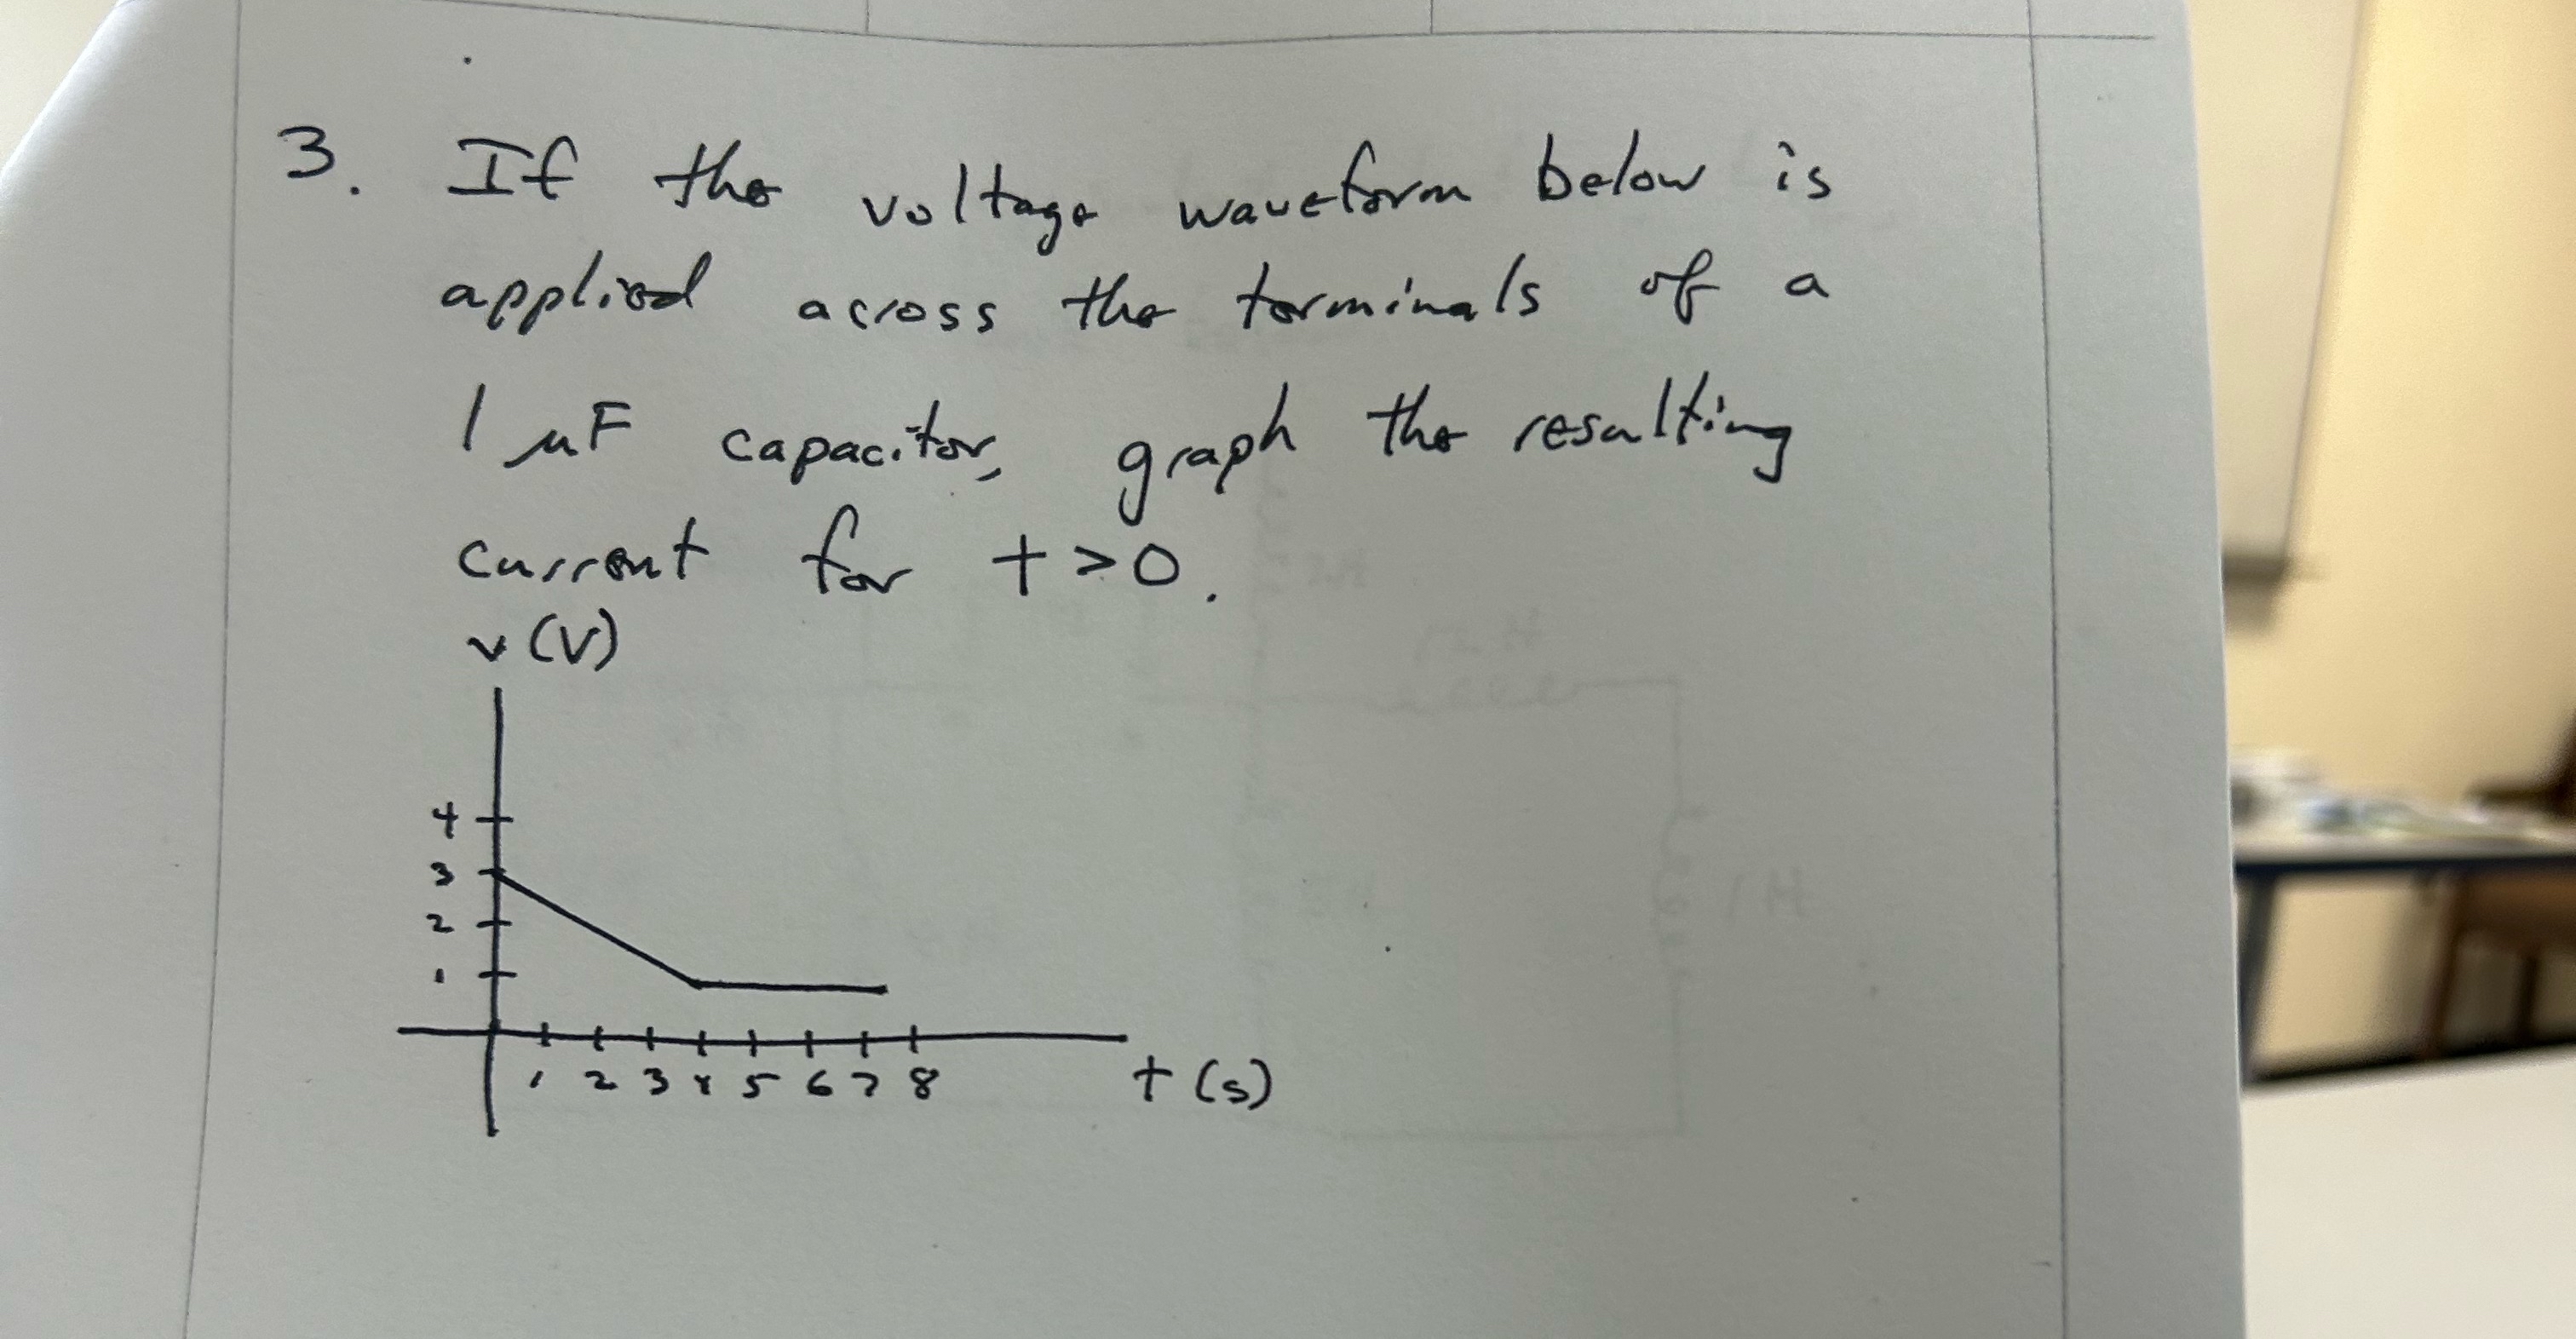 3. If the voltage waveform below is
applied across the terminals of a
1 µF capacitor, graph the resulting
current for t > 0.
v (V)
4
3
2
1
1 2 3 4 5 6 7 8
t (s)